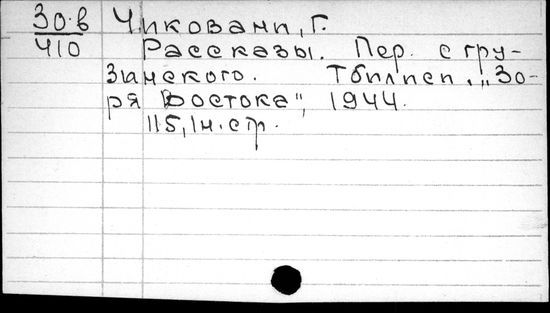 30.в Чиковани, Г.
410 Рассказы. Пер. с гру-
зинского. Тбилиси. „Зо-
ря Востока", 1944.
115, 1н. стр.